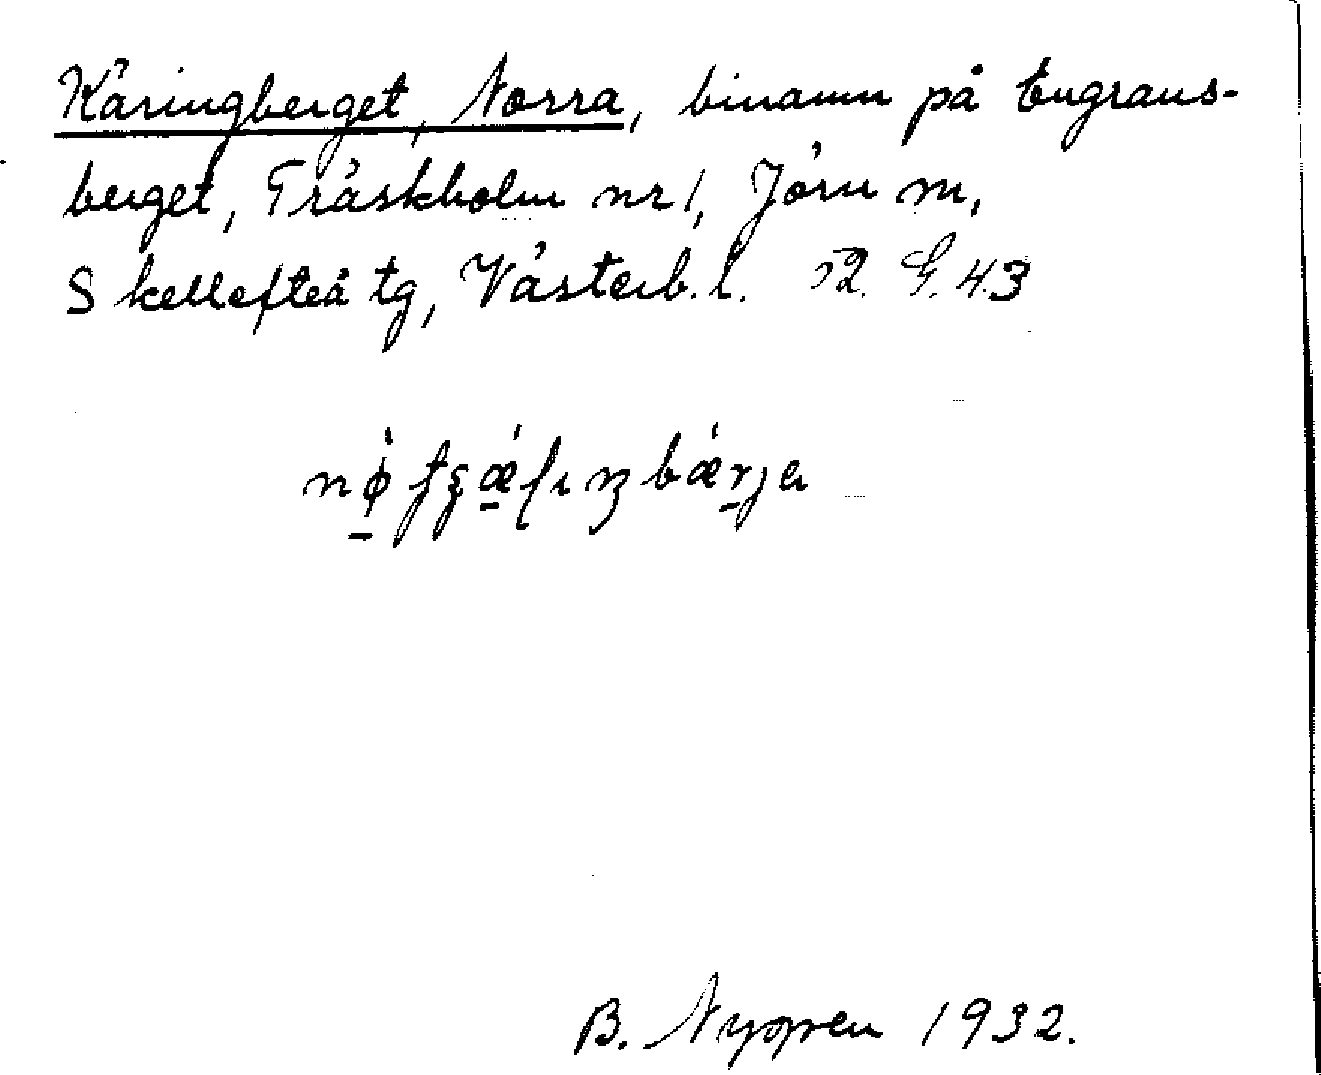 Käringberget, Norra, binamn på Engrans-
berget, Träskholm nr 1, Jörn sn,
Skellefteå tg, Västerb. l. 52. G. 43
B. Nygren 1932.